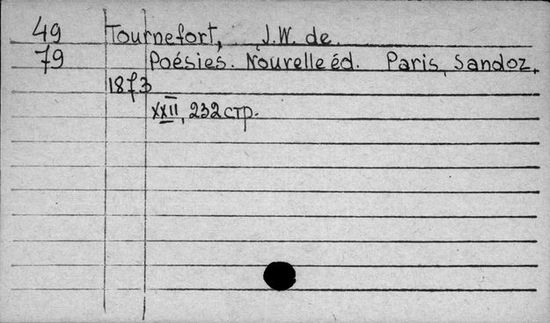 49 Tournefort, J.W. de.
79 Poésies. Nouvelle éd. Paris, Sandoz,
1873
XXII, 232 стр.